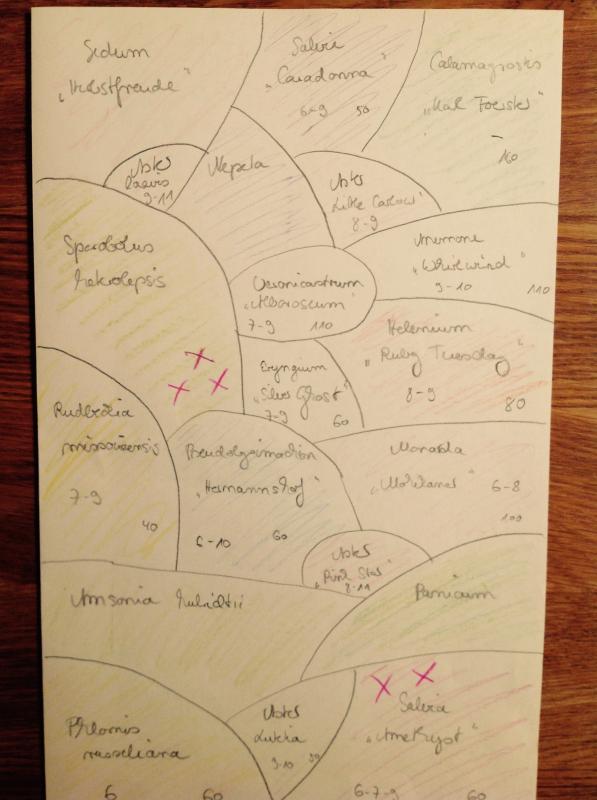 Sedum
„Herbstfreude"
Salvia
„Caradonna"
6-9 50
Calamagrostis
„Karl Foerster"
160
Aster
laevis
9-11
Nepeta
Aster
„Little Carlow"
8-9
Sporobolus
heterolepsis
Veronicastrum
„Alboroseum"
7-9 110
Anemone
„Whirlwind"
9-10 110
Helenium
„Ruby Tuesday"
8-9
80
Eryngium
„Silver Ghost"
7-9 60
Rudbeckia
missouriensis
7-9
40
„Hermannshof"
6-10 60
Monarda
6-8
100
Aster
„Pink Star"
8-11
Amsonia hubrichtii
Panicum
Phlomis
russeliana
6 60
Aster
9-10
Salvia
„Amethyst"
6-7-9 60